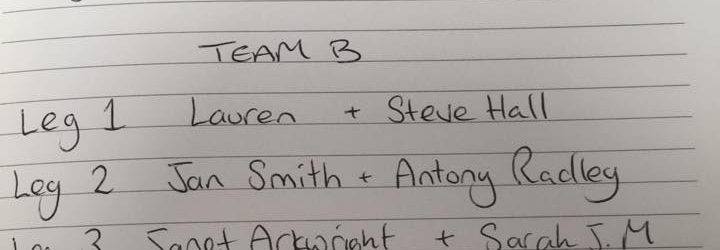 TEAM B
Leg 1 Lauren + Steve Hall
Leg 2 Jan Smith + Antony Radley
Leg 3 Janet Arkwright + Sarah J.M